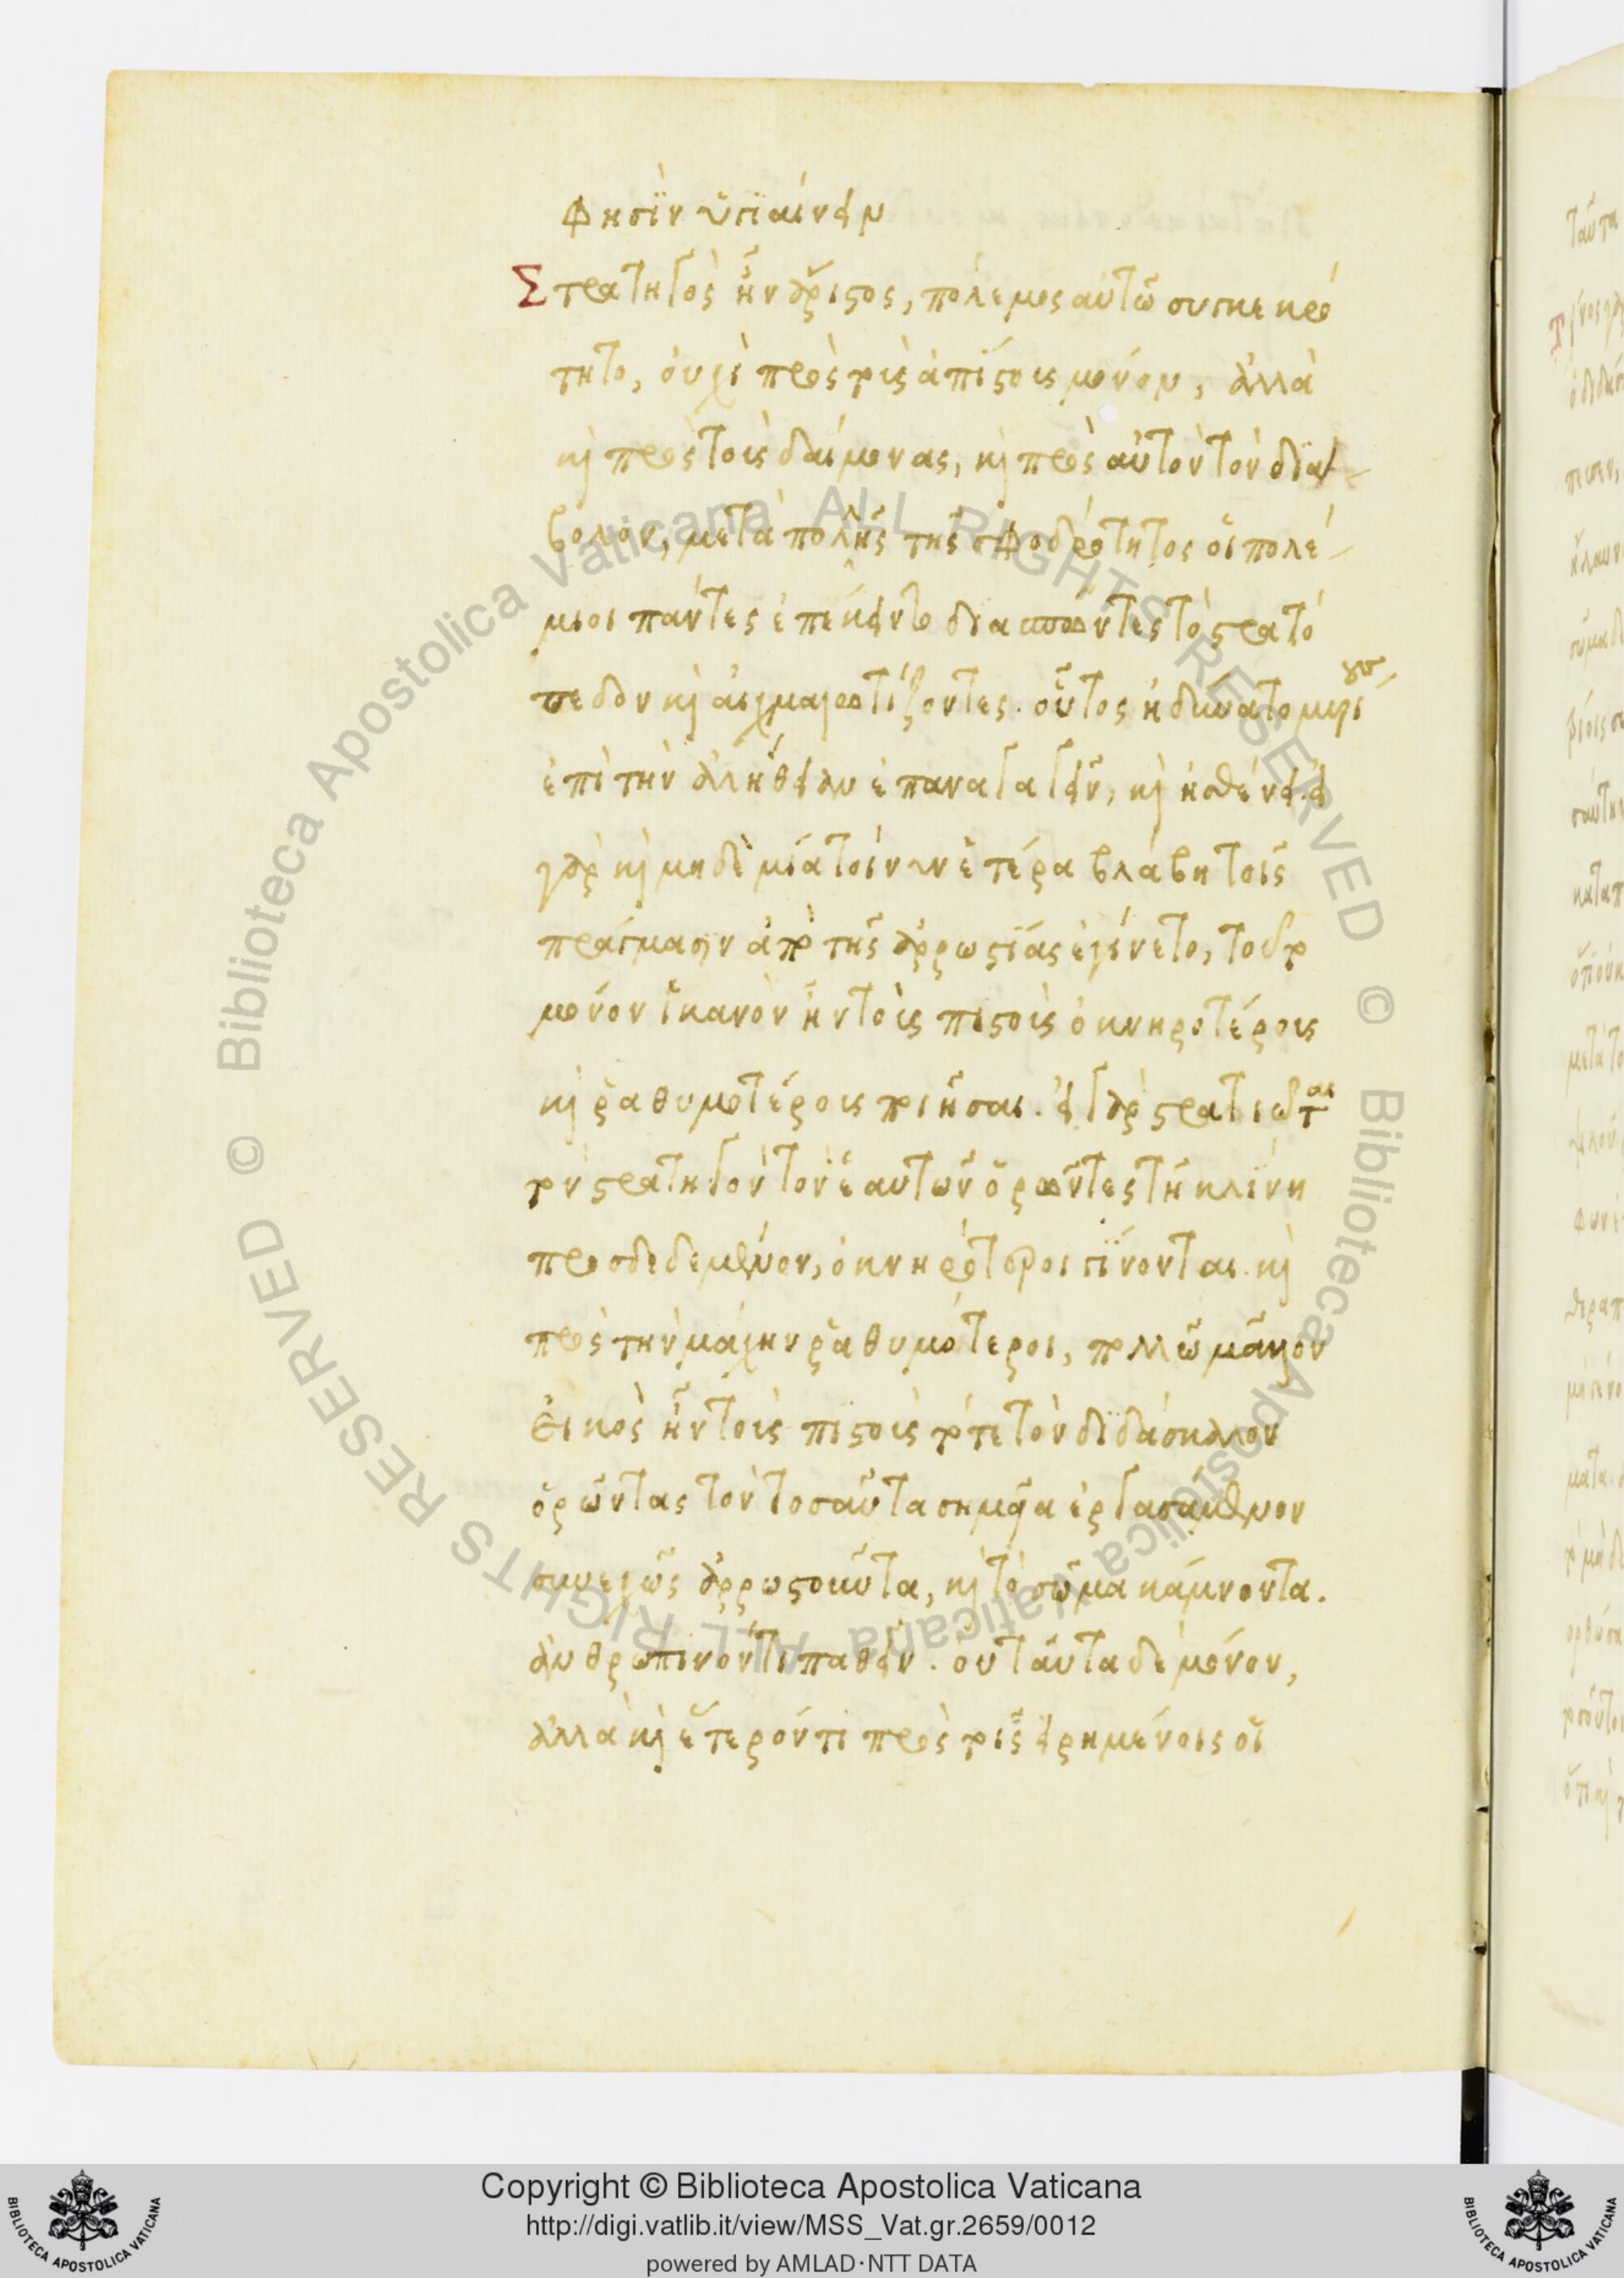 φησὶν ὑγιαίνειν
Στρατηγὸς ἦν ἄριστος, πόλεμος αὐτῶ συγκεκρό
τητο, ὀυχὶ πρὸς τοὺς ἀπίστους μόνον, ἀλλὰ
κὶ πρὸς τοὺς δαίμονας, κὶ πρὸς αὐτὸν τὸν διά
βολον, μετὰ πολλῆς τῆς σφοδρότητος οἱ πολέ
μιοι πάντες ἐπέκειντο διασπῶντες τὸ στρατό
πεδον κὶ αἰχμαλωτίζοντες. οὗτος
ἐπὶ τὴν ἀλήθειαν ἐπαναγαγεῖν, κὶ ἠσθένει. εἰ
γὰρ κὶ μηδεμία τοίνυν ἑτέρα βλάβη τοῖς
πράγμασιν ἀπὸ τῆς ἀρρωστίας ἐγίνετο, τοῦτο
μόνον ἱκανὸν ἦν τοὺς πιστοὺς ὀκνηροτέρους
κὶ ῥαθυμοτέρους ποιῆσαι. εἰ γὰρ στρατιῶται
τὸν στρατηγὸν τὸν ἑαυτῶν ὁρῶντες τῆ κλίνη
προσδεδεμένον, ὀκνηρότεροι γίνονται κὶ
πρὸς τὴν μάχην ῥαθυμότεροι, πολλῶ μᾶλλον
εἰκὸς ἦν τοὺς πιστοὺς τότε τὸν διδάσκαλον
ὁρῶντας τὸν τοσαῦτα σημεῖα ἐργασάμενον
συνεχῶς ἀρρωστοῦντα, κὶ τὸ σῶμα κάμνοντα.
ἀνθρώπινόν τι παθεῖν. ὀυ ταύτα δὲ μόνον,
ἀλλὰ κὶ ἕτερόν τι πρὸς τοῖς εἰρημένοις οἱ
Copyright © Biblioteca Apostolica Vaticana
http://digi.vatlib.it/view/MSS_Vat.gr.2659/0012
powered by AMLAD·NTT DATA
BIBLIOTECA APOSTOLICA VATICANA
BIBLIOTECA APOSTOLICA VATICANA
© Biblioteca Apostolica Vaticana ALL RIGHTS RESERVED
© Biblioteca Apostolica Vaticana ALL RIGHTS RESERVED